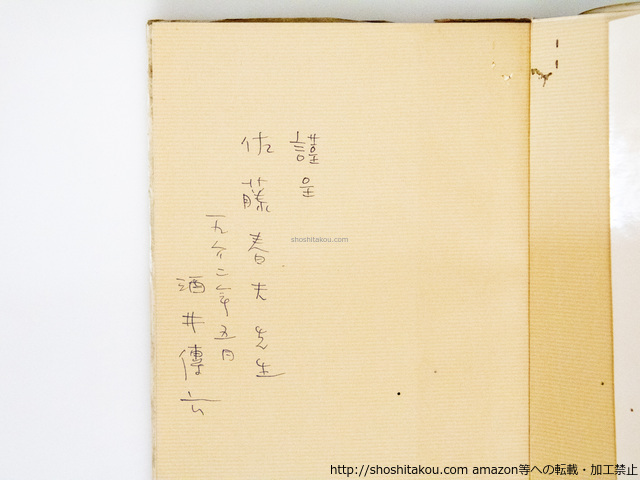 謹呈
佐藤春夫先生
一九六二年五月
酒井傳六
shoshitakou.com
http://shoshitakou.com amazon等への転載・加工禁止